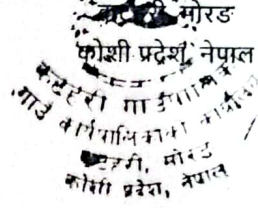 कटहरी मोरङ
कोशी प्रदेश, नेपाल
कटहरी गाउँपालिका
गाउँ कार्यपालिकाको कार्यालय
कटहरी, मोरङ
कोशी प्रदेश, नेपाल